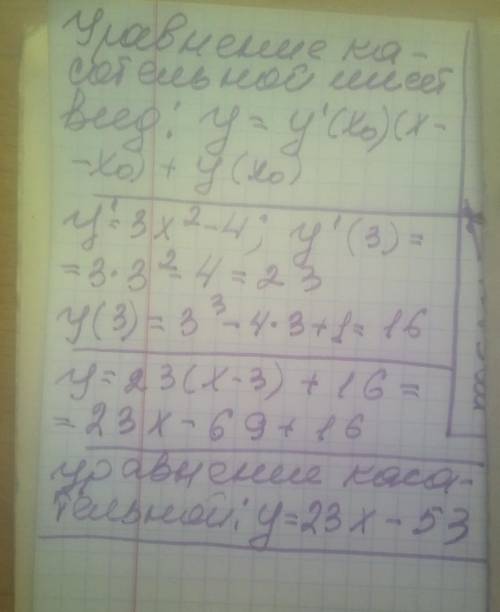 Уравнение ка-
сательной имеет
вид: y = y'(x₀)(x-
-x₀) + y(x₀)
y'=3x²-4; y'(3)=
=3·3²-4=23
y(3)=3³-4·3+1=16
y=23(x-3)+16=
=23x-69+16
уравнение каса-
тельной: y=23x-53